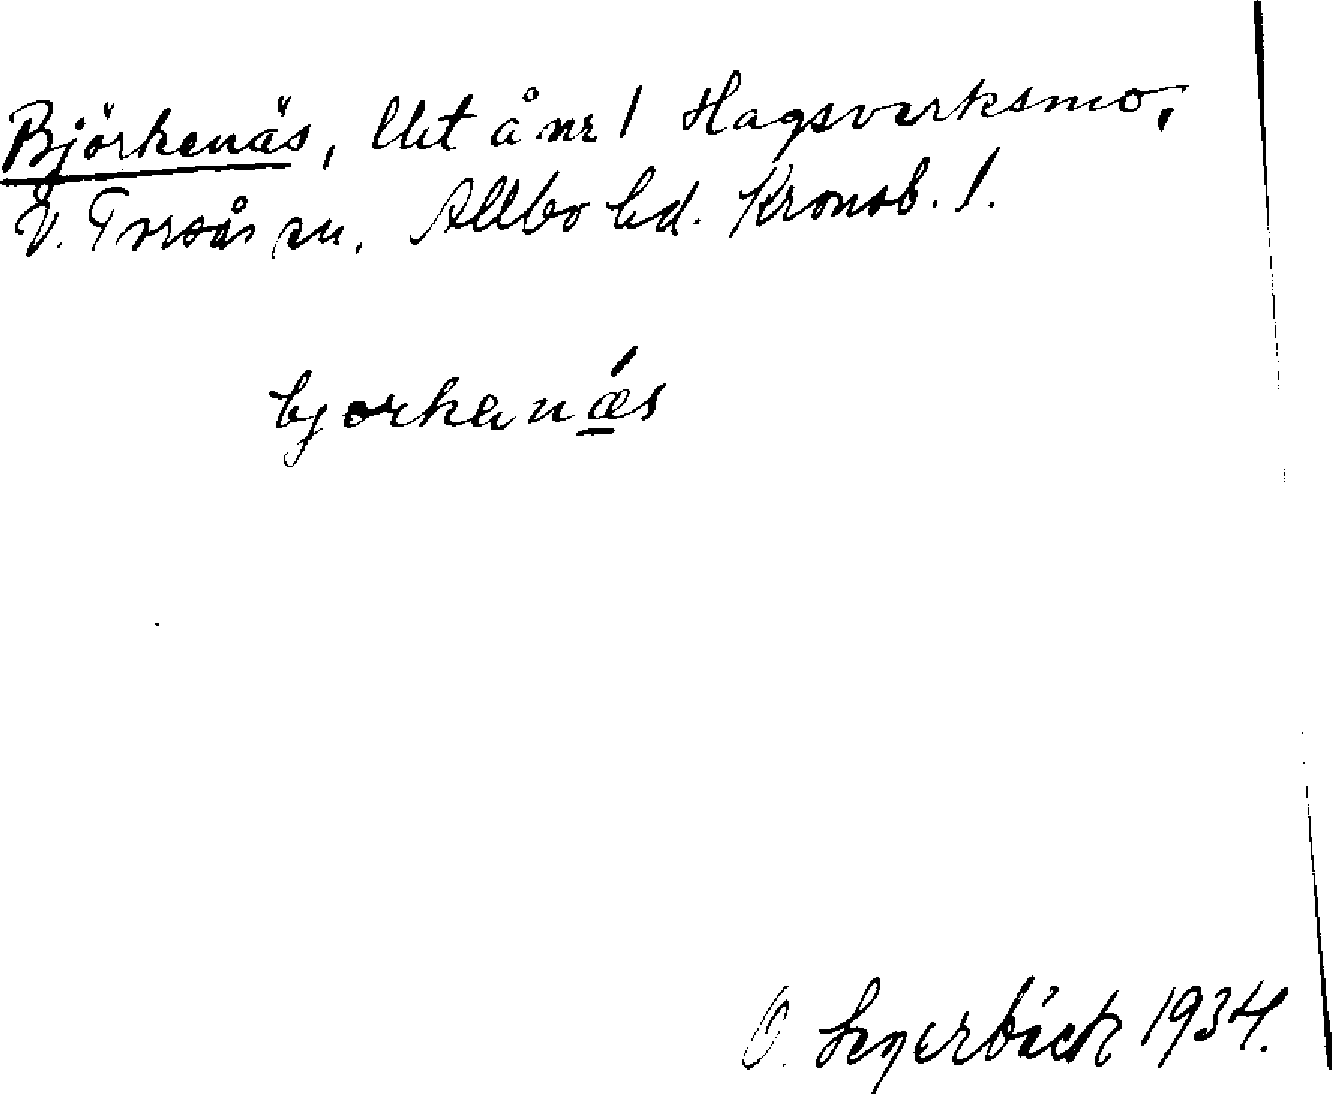 Björkenäs, lht å nr 1 Hagsverksmo,
V. Torsås sn. Allbo hd. Kronob. l.
bjorkenǽ̲s
O. Segerbäck 1934.